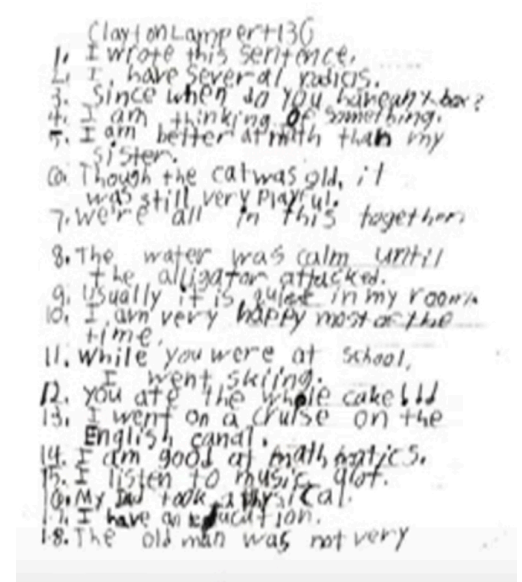 Clayton Lampert 130
1. I wrote this sentence.
2. I have several radios.
3. Since when do you have an x box?
4. I am thinking of something.
5. I am better at math than my
sister.
6. Though the cat was old, it
was still very playful.
7. We're all in this together.
8. The water was calm until
the alligator attacked.
9. Usually it is quiet in my room.
10. I am very happy most of the
time.
11. While you were at school,
I went skiing.
12. You ate the whole cake!!!
13. I went on a cruise on the
English canal.
14. I am good at mathmatics.
15. I listen to music alot.
16. My Dad took a
17. I have an education.
18. The old man was not very